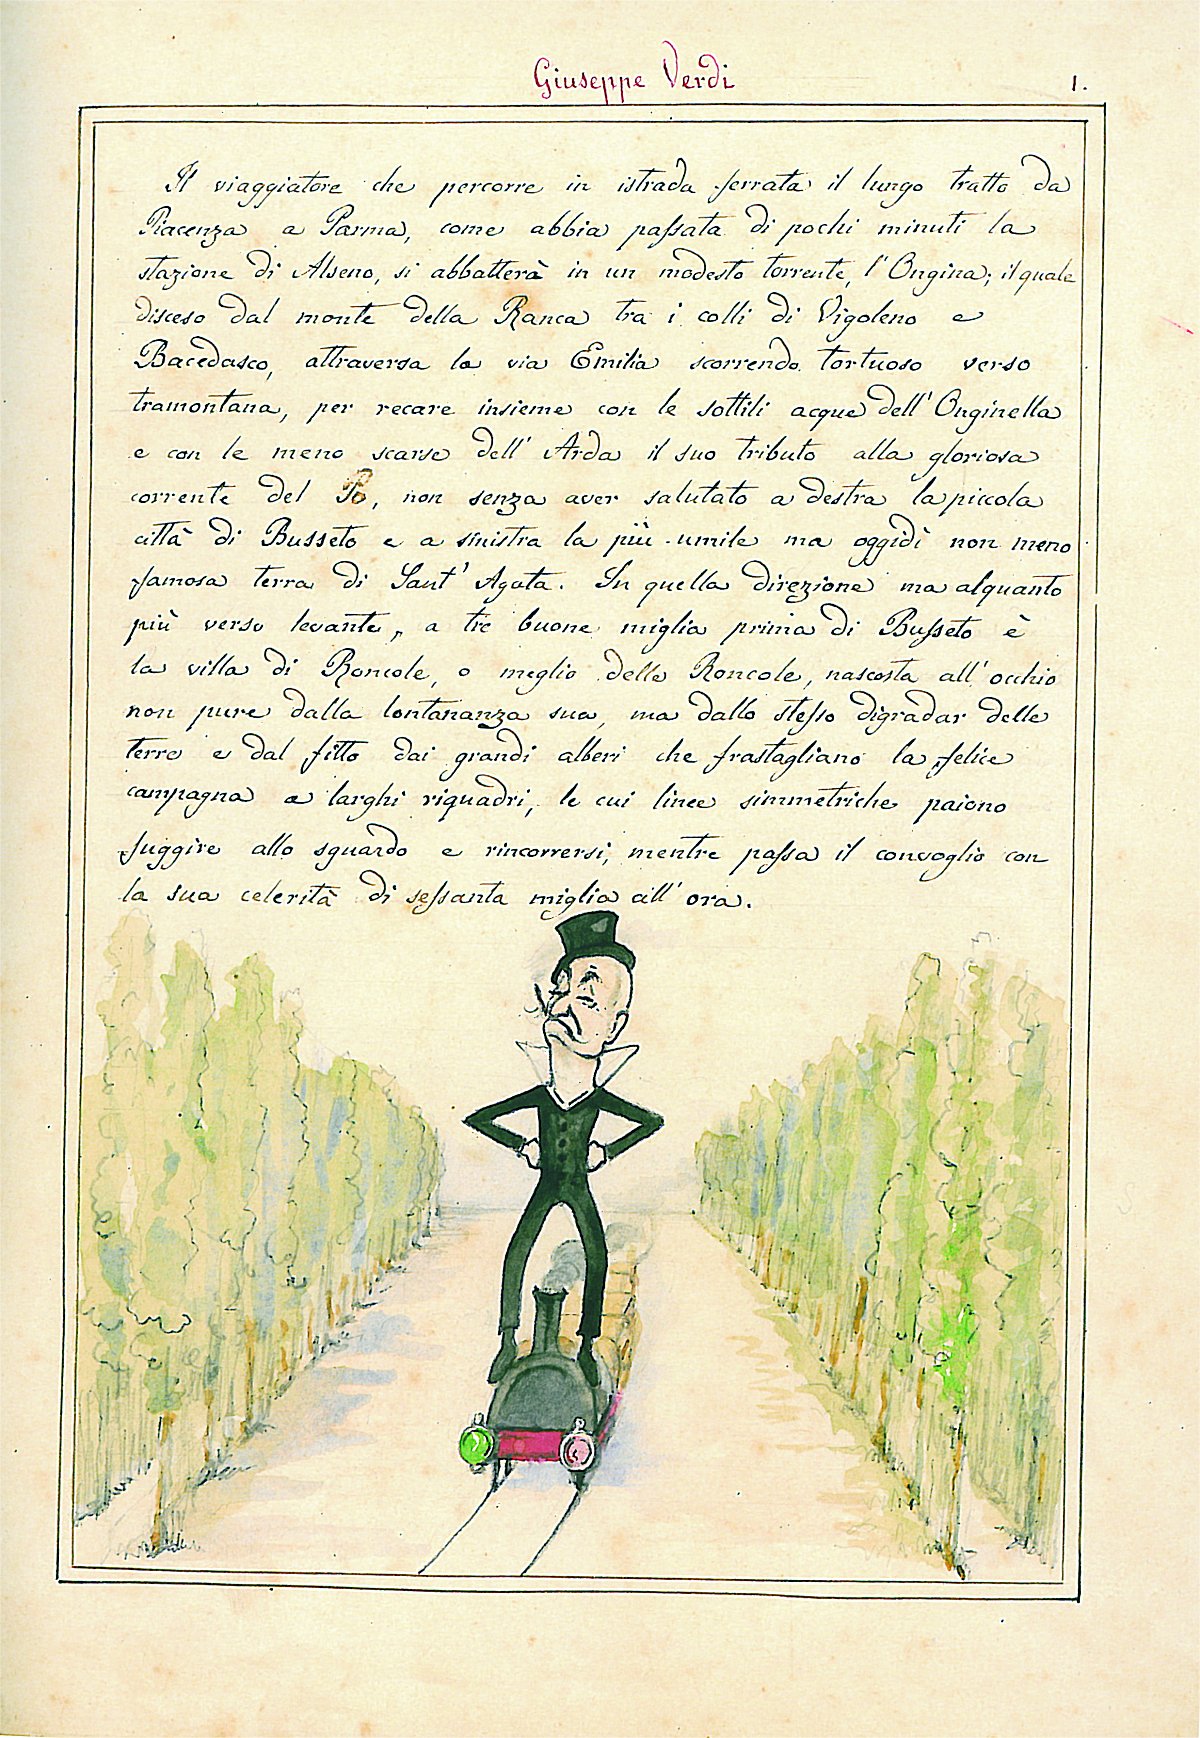 Giuseppe Verdi
1.
Il viaggiatore che percorre in istrada ferrata il lungo tratto da
Piacenza a Parma, come abbia passata di pochi minuti la
stazione di Alseno, si abbatterà in un modesto torrente, l'Ongina; il quale
disceso dal monte della Ranca tra i colli di Vigoleno e
Bacedasco, attraversa la via Emilia scorrendo tortuoso verso
tramontana, per recare insieme con le sottili acque dell'Onginella
e con le meno scarse dell'Arda il suo tributo alla gloriosa
corrente del Po, non senza aver salutato a destra la piccola
città di Busseto e a sinistra la più umile ma oggidì non meno
famosa terra di Sant'Agata. In quella direzione ma alquanto
più verso levante, a tre buone miglia prima di Busseto è
la villa di Roncole, o meglio delle Roncole, nascosta all'occhio
non pure dalla lontananza sua, ma dallo stesso digradar delle
terre e dal fitto dai grandi alberi che frastagliano la felice
campagna a larghi riquadri, le cui linee simmetriche paiono
fuggire allo sguardo e rincorrersi, mentre passa il convoglio con
la sua celerità di sessanta miglia all'ora.